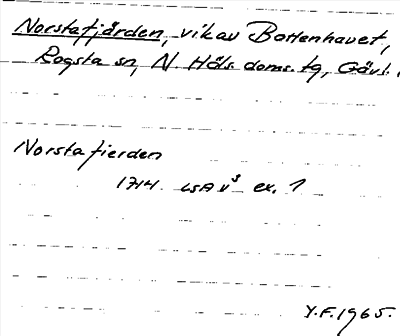 Norstafjärden, vik av Bottenhavet,
Rogsta sn, N. Häls. doms. tg, Gävl.
Norsta fierden
1714 LSA v³ ex. 1
Y.F. 1965.